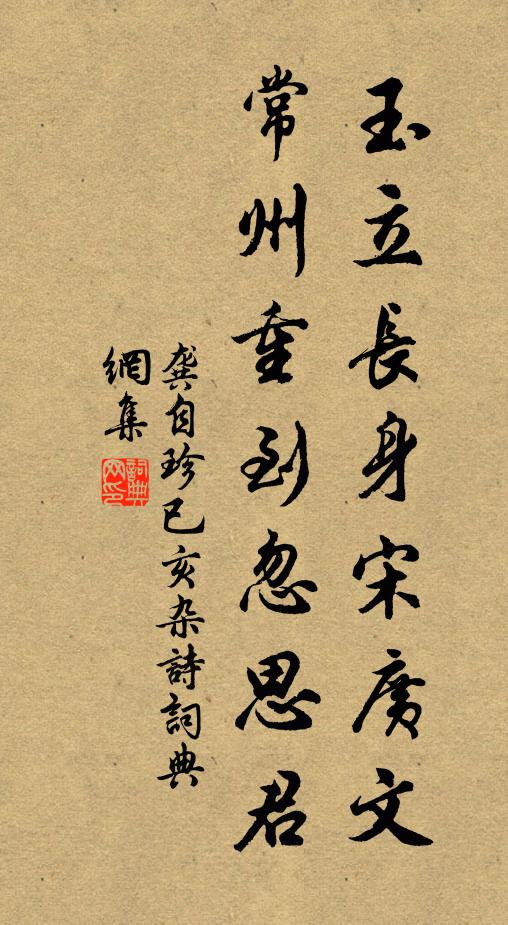 玉立長身宋廣文
常州重到忽思君
龔自珍己亥杂詩詞典
網集
詞典網印